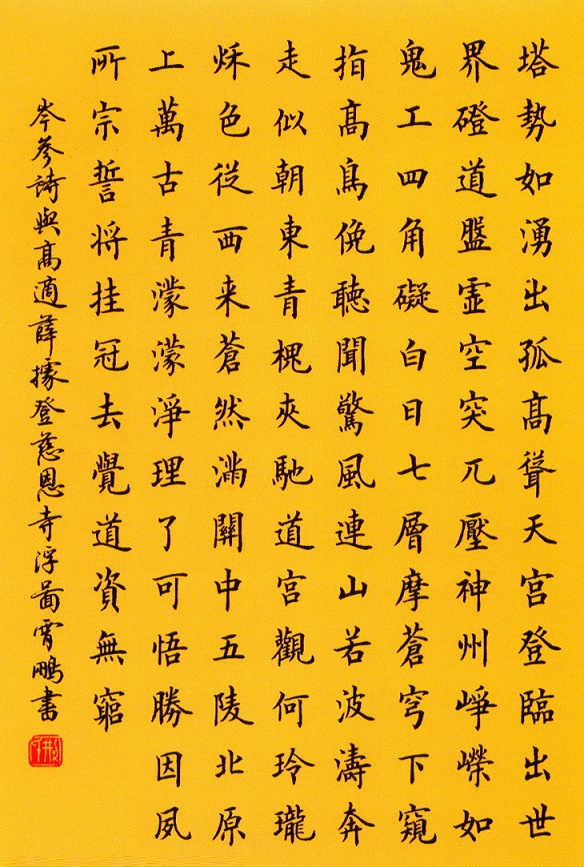 塔勢如湧出孤髙聳天宮登臨出世
界磴道盤虛空突兀壓神州崢嶸如
鬼工四角礙白日七層摩蒼穹下窺
指髙鳥俛聽聞驚風連山若波濤奔
走似朝東青槐夾馳道宮觀何玲瓏
秋色從西来蒼然滿關中五陵北原
上萬古青濛濛淨理了可悟勝因夙
所宗誓将挂冠去覺道資無窮
岑參詩與髙適薛據登慈恩寺浮圖霄鵬書